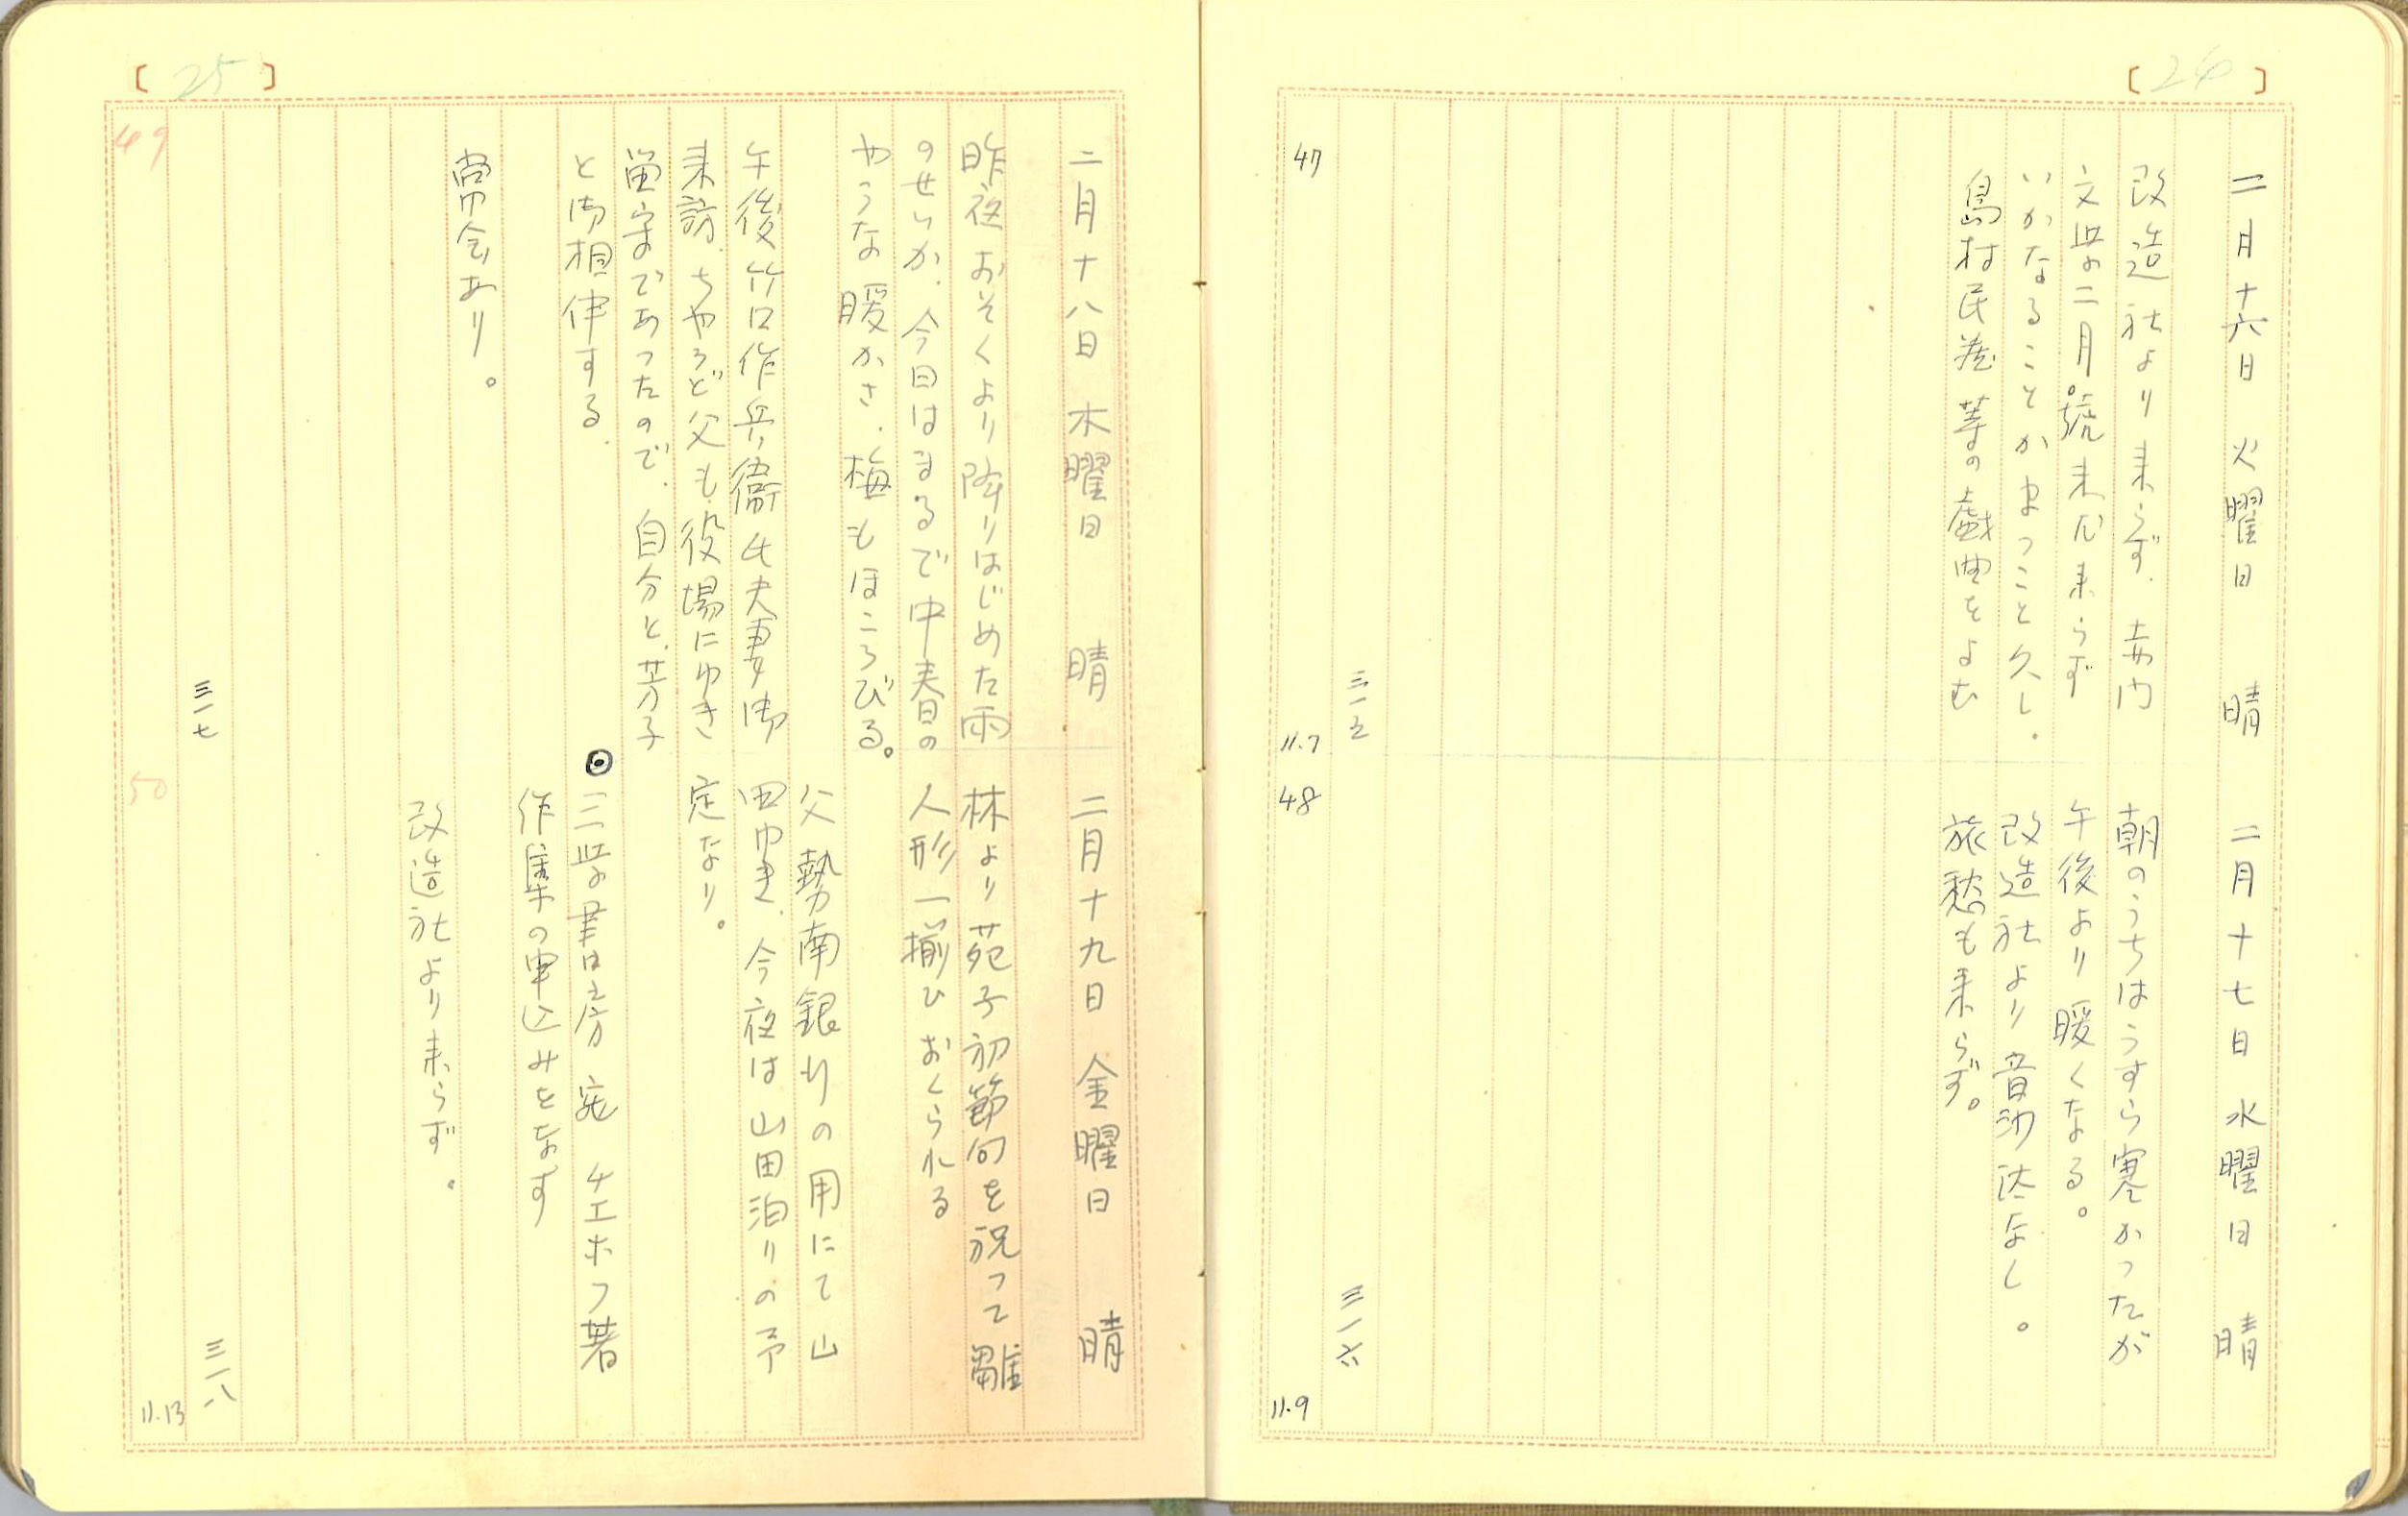 [26]
二月十六日 火曜日 晴
改造社より来らず.
文学二月號未だ来らず
いかなることかまつこと久し.
島村民蔵等の戯曲をよむ
三一五
47
11.7
二月十七日 水曜日 晴
朝のうちはうすら寒かったが
午後より暖くなる。
改造社より音沙汰なし。
旅愁も来らず。
三一六
48
11.9
[25]
二月十八日 木曜日 晴
昨夜おそくより降りはじめた雨
のせいか.今日はまるで中春日の
やうな暖かさ.梅もほころびる。
午後竹口作兵衞氏夫妻御
来訪.ちやうど父も役場にゆき
留守であつたので.自分と.芳子
と御相伴する.
常会あり。
三一七
49
二月十九日 金曜日 晴
林より苑子初節句を祝つて雛
人形一揃ひおくられる
父勢南銀行の用にて山
田ゆき.今夜は山田泊りの予
定なり。
◉三学書房宛 チエホフ著
作集の申込みをなす
改造社より来らず.
三一八
50
11.13